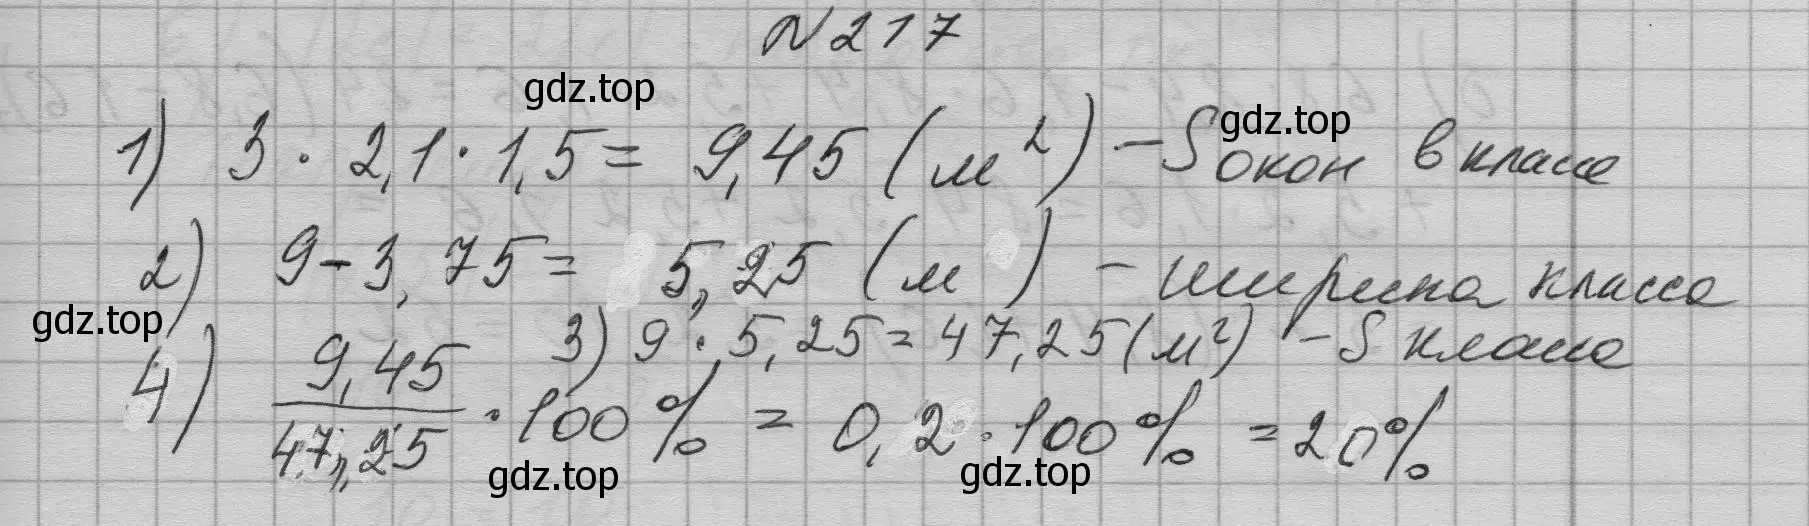 №217
gdz.top
gdz.top
1) 3 · 2,1 · 1,5 = 9,45 (м²) – S окон в классе
2) 9 – 3,75 = 5,25 (м) – ширина класса
gdz.top
3) 9 · 5,25 = 47,25 (м²) – S класса
4) 9,45/47,25 · 100% = 0,2 · 100% = 20%
gdz.top
gdz.top